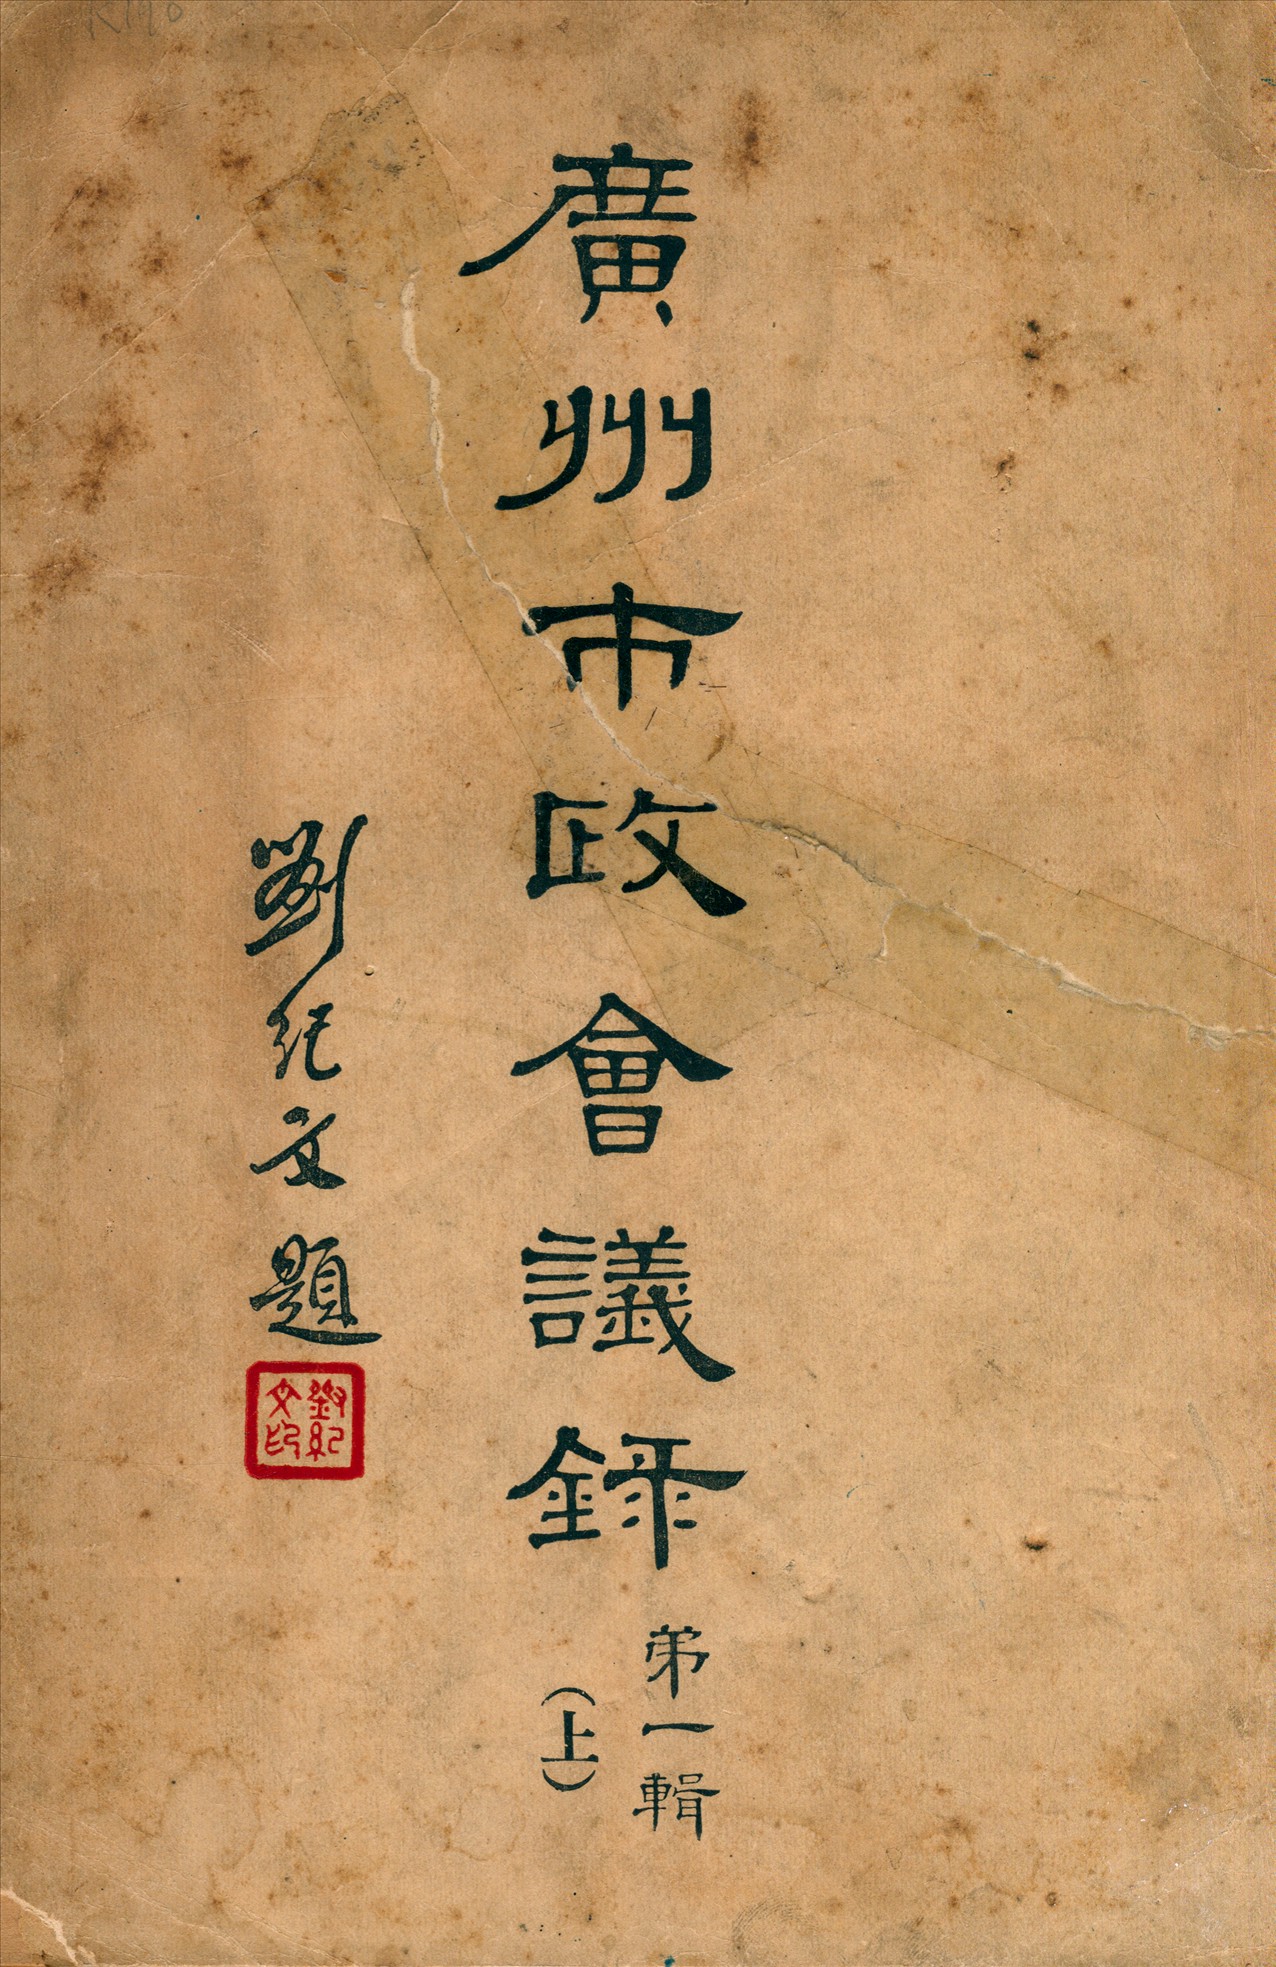 廣州市政會議録
弟一輯
（上）
劉紀文題
劉紀文印